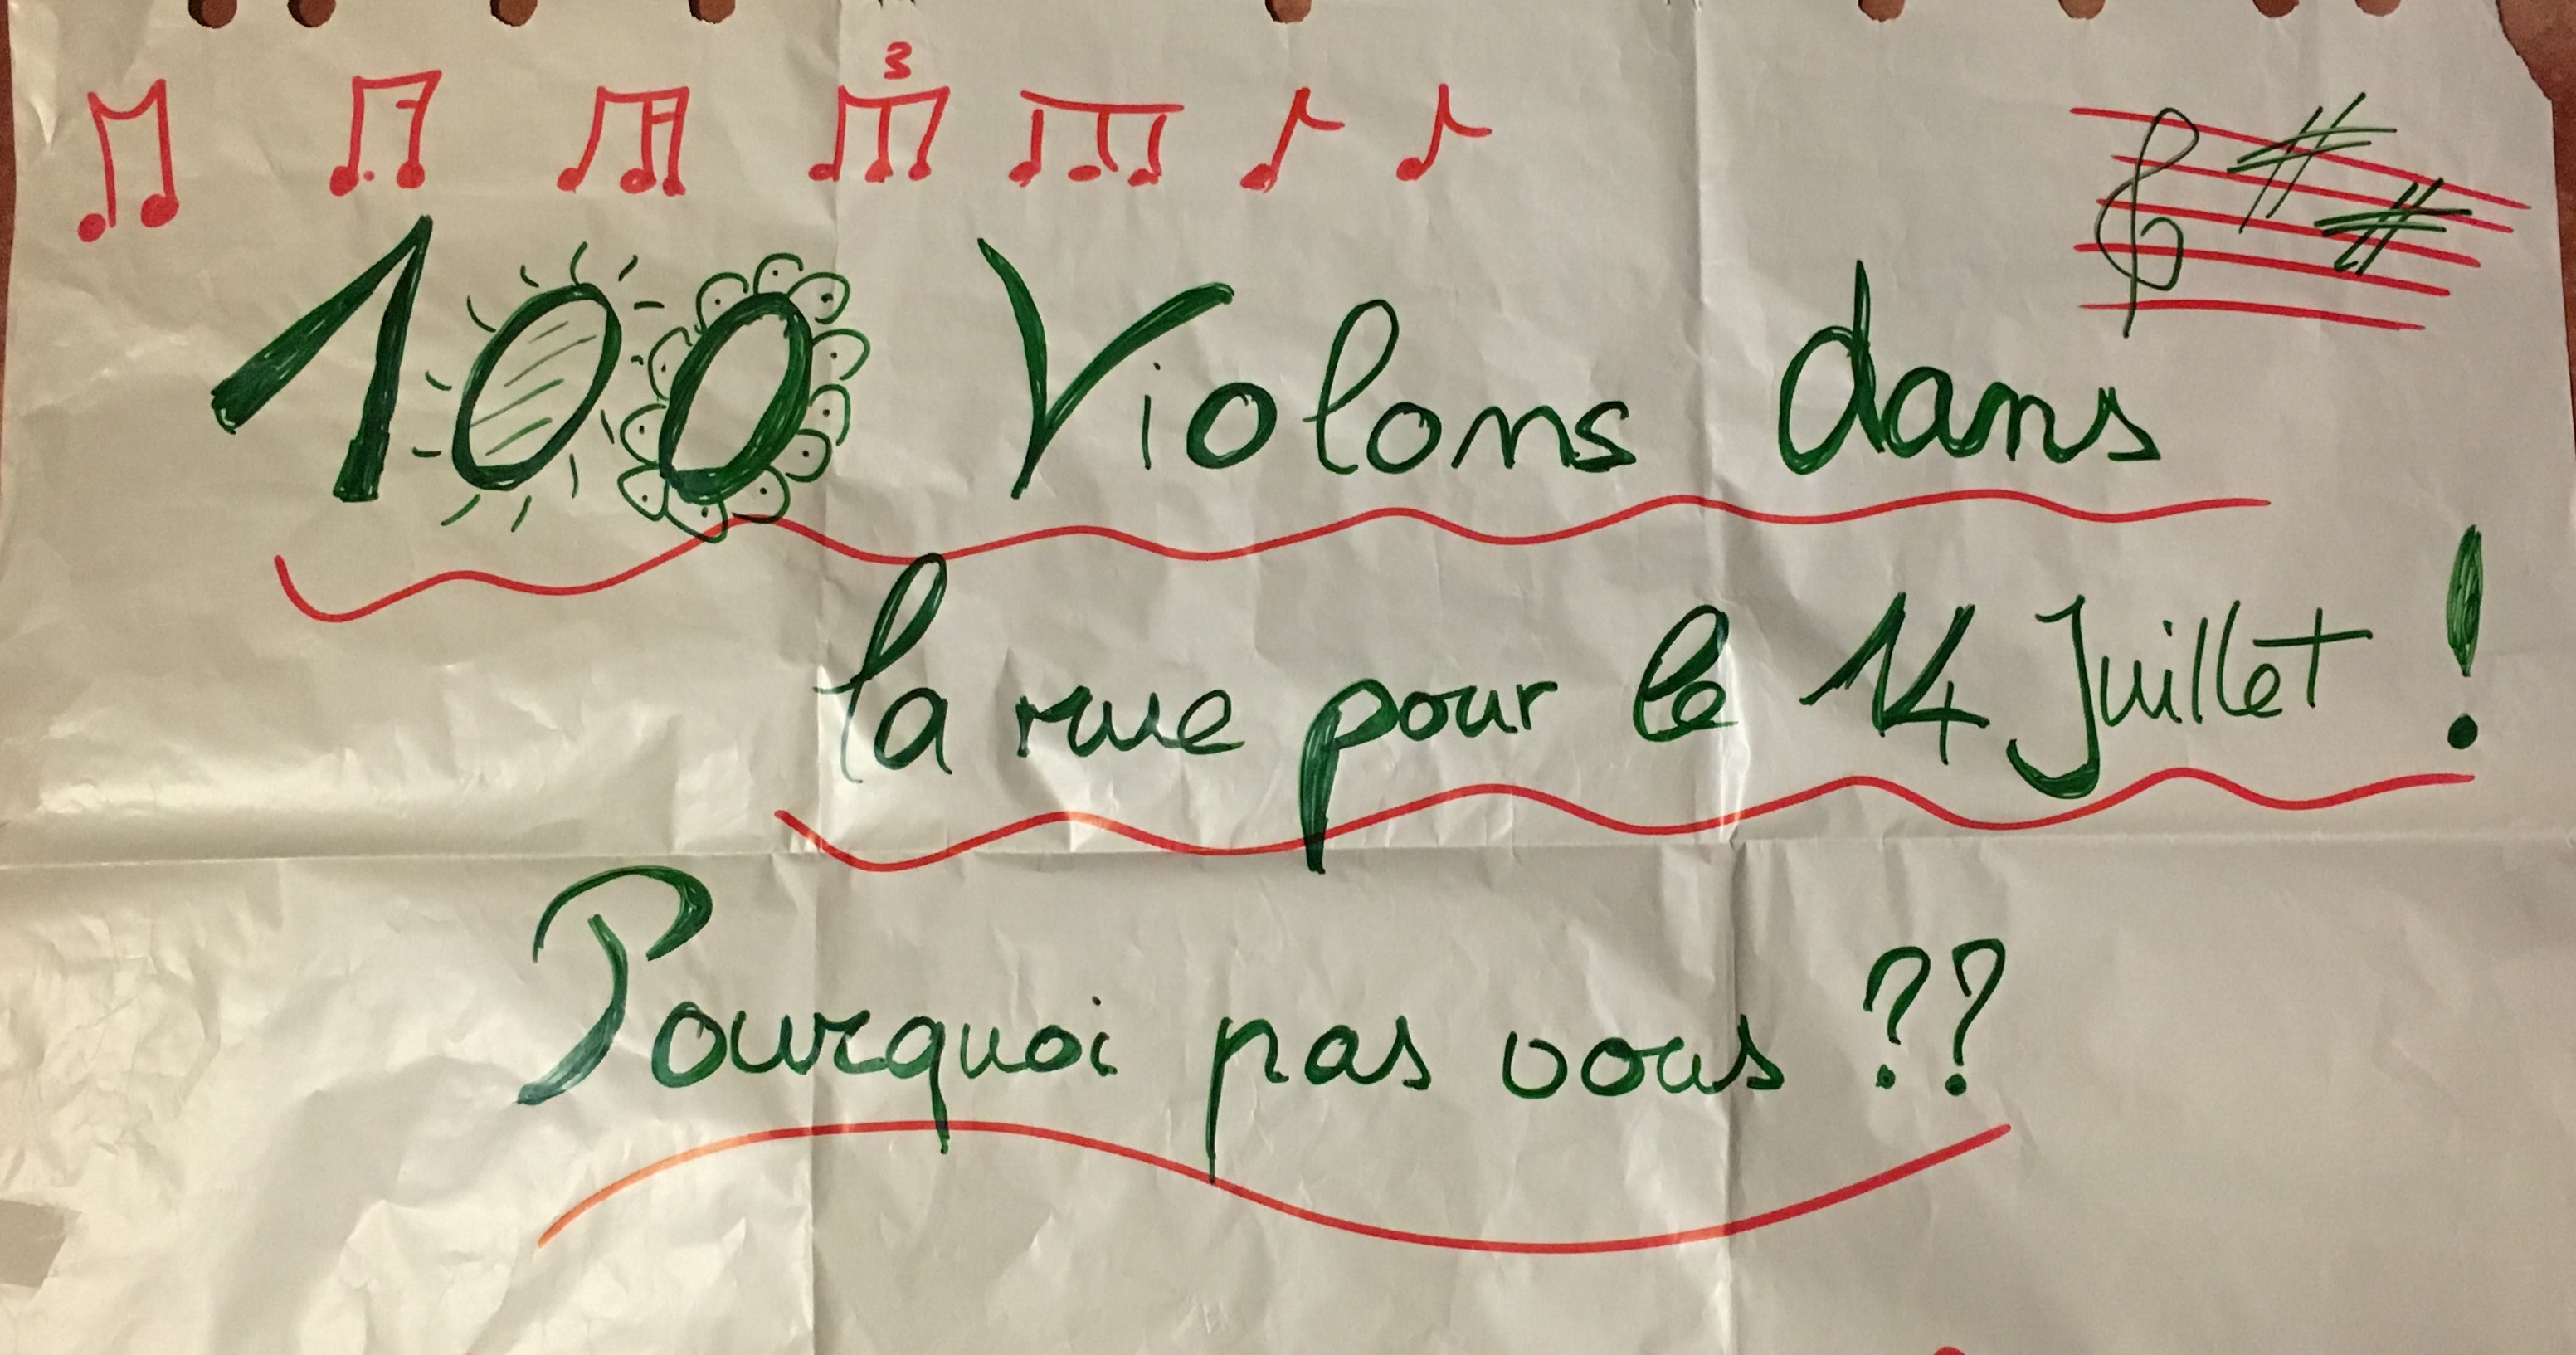 3
100 Violons dans
la rue pour le 14 Juillet !
Pourquoi pas vous ??